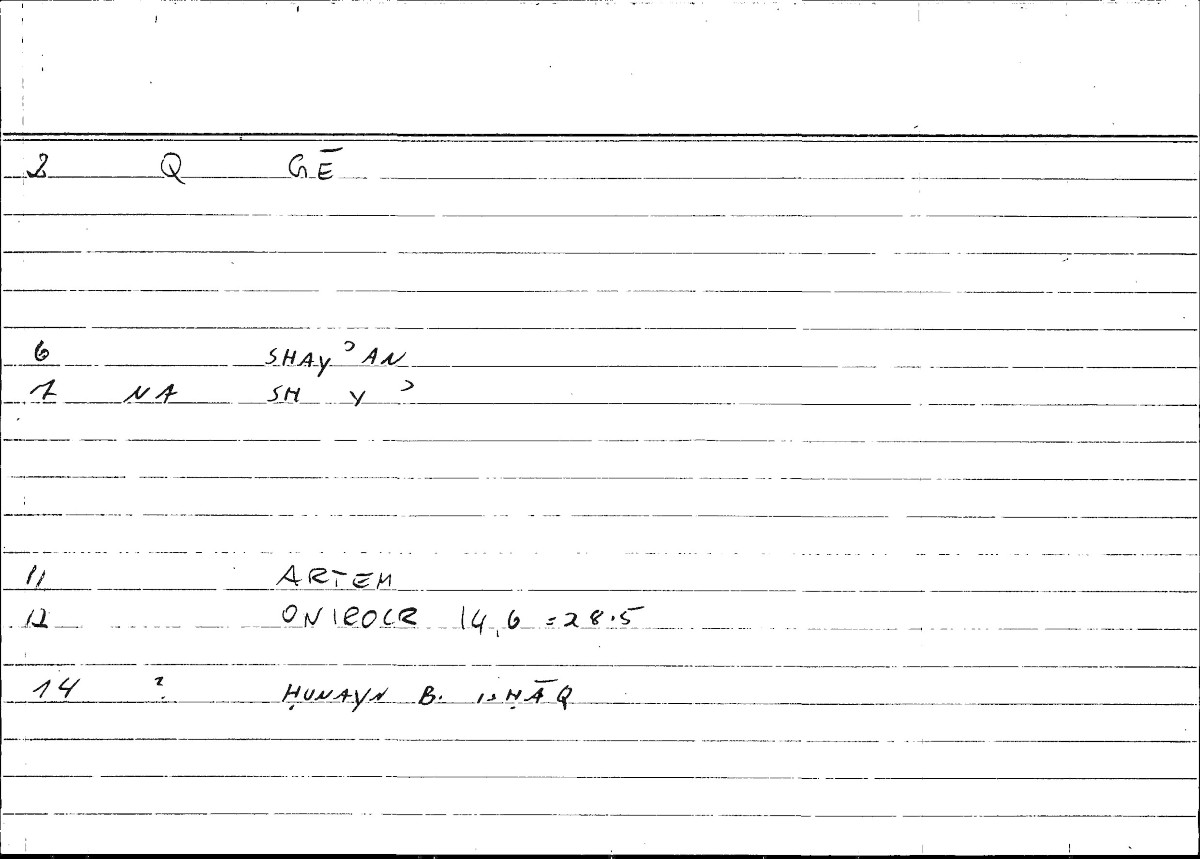 2 Q GĒ
6 SHAYʾAN
7 NA SH Y ʾ
11 ARTEM
12 ONIROCR 14,6 = 28.5
14 ? ḤUNAYN B. ISḤĀQ